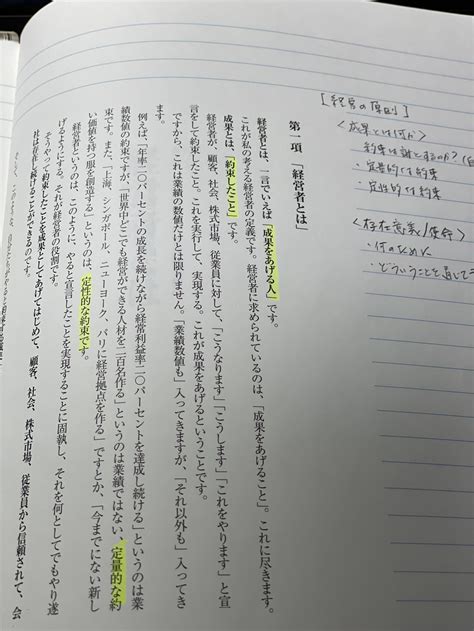 第一項 「経営者とは」
経営者とは、一言でいえば「成果をあげる人」です。
これが私の考える経営者の定義です。経営者に求められているのは、「成果をあげること」。これに尽きます。
成果とは、「約束したこと」です。
経営者が、顧客、社会、株式市場、従業員に対して、「こうなります」「こうします」「これをやります」と宣
言をして約束したこと。これを実行して、実現する。これが成果をあげるということです。
ですから、これは業績の数値だけとは限りません。「業績数値も」入ってきますが、「それ以外も」入ってき
ます。
例えば、「年率二〇パーセントの成長を続けながら経常利益率二〇パーセントを達成し続ける」というのは業
績数値の約束ですが、「世界中どこでも経営ができる人材を二百名作る」というのは業績ではない、定量的な約
束です。また、「上海、シンガポール、ニューヨーク、パリに経営拠点を作る」ですとか、「今までにない新し
い価値を持つ服を創造する」というのは、定性的な約束です。
経営者というのは、このように、やると宣言したことを実現することに固執し、それを何としてでもやり遂
げるようにする。それが経営者の役割です。
そうやって約束したことを成果としてあげてはじめて、顧客、社会、株式市場、従業員から信頼されて、会
社は存在し続けることができるのです。
[経営の原則]
<成果とは何か>
約束は誰とするのか?
定量的な約束
定性的な約束
<存在意義/使命>
何のために
どういうことを通じて